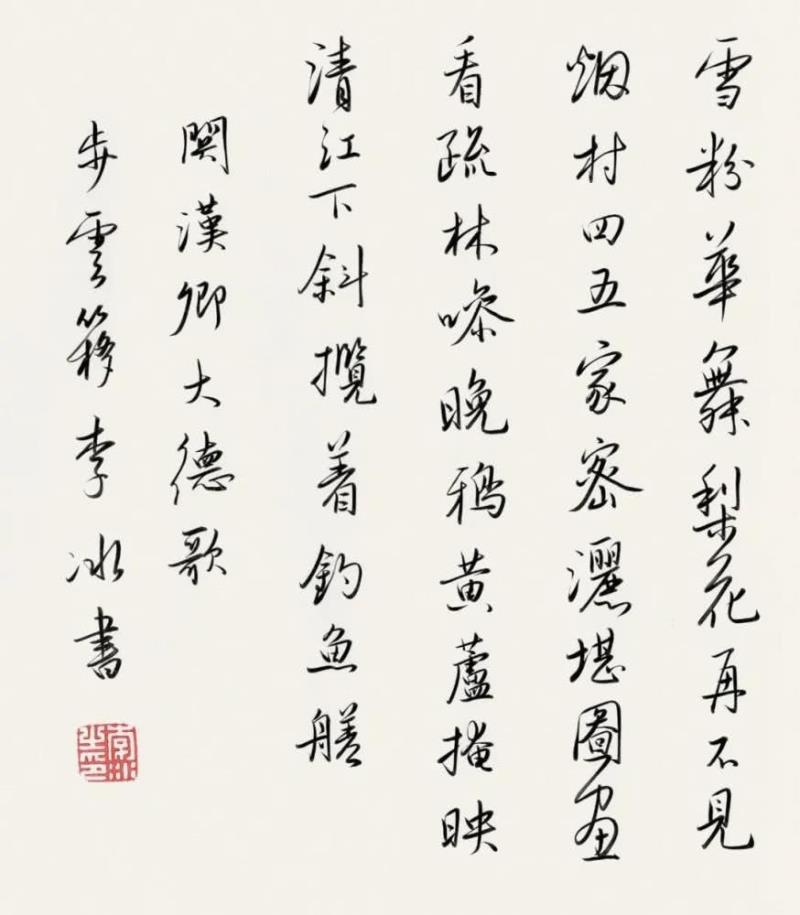 雪粉華舞梨花再不見
烟村四五家密灑堪圖畫
看疏林噪晚鴉黄蘆掩映
清江下斜攬着釣魚艖
關漢卿大德歌
步雲簃李冰書